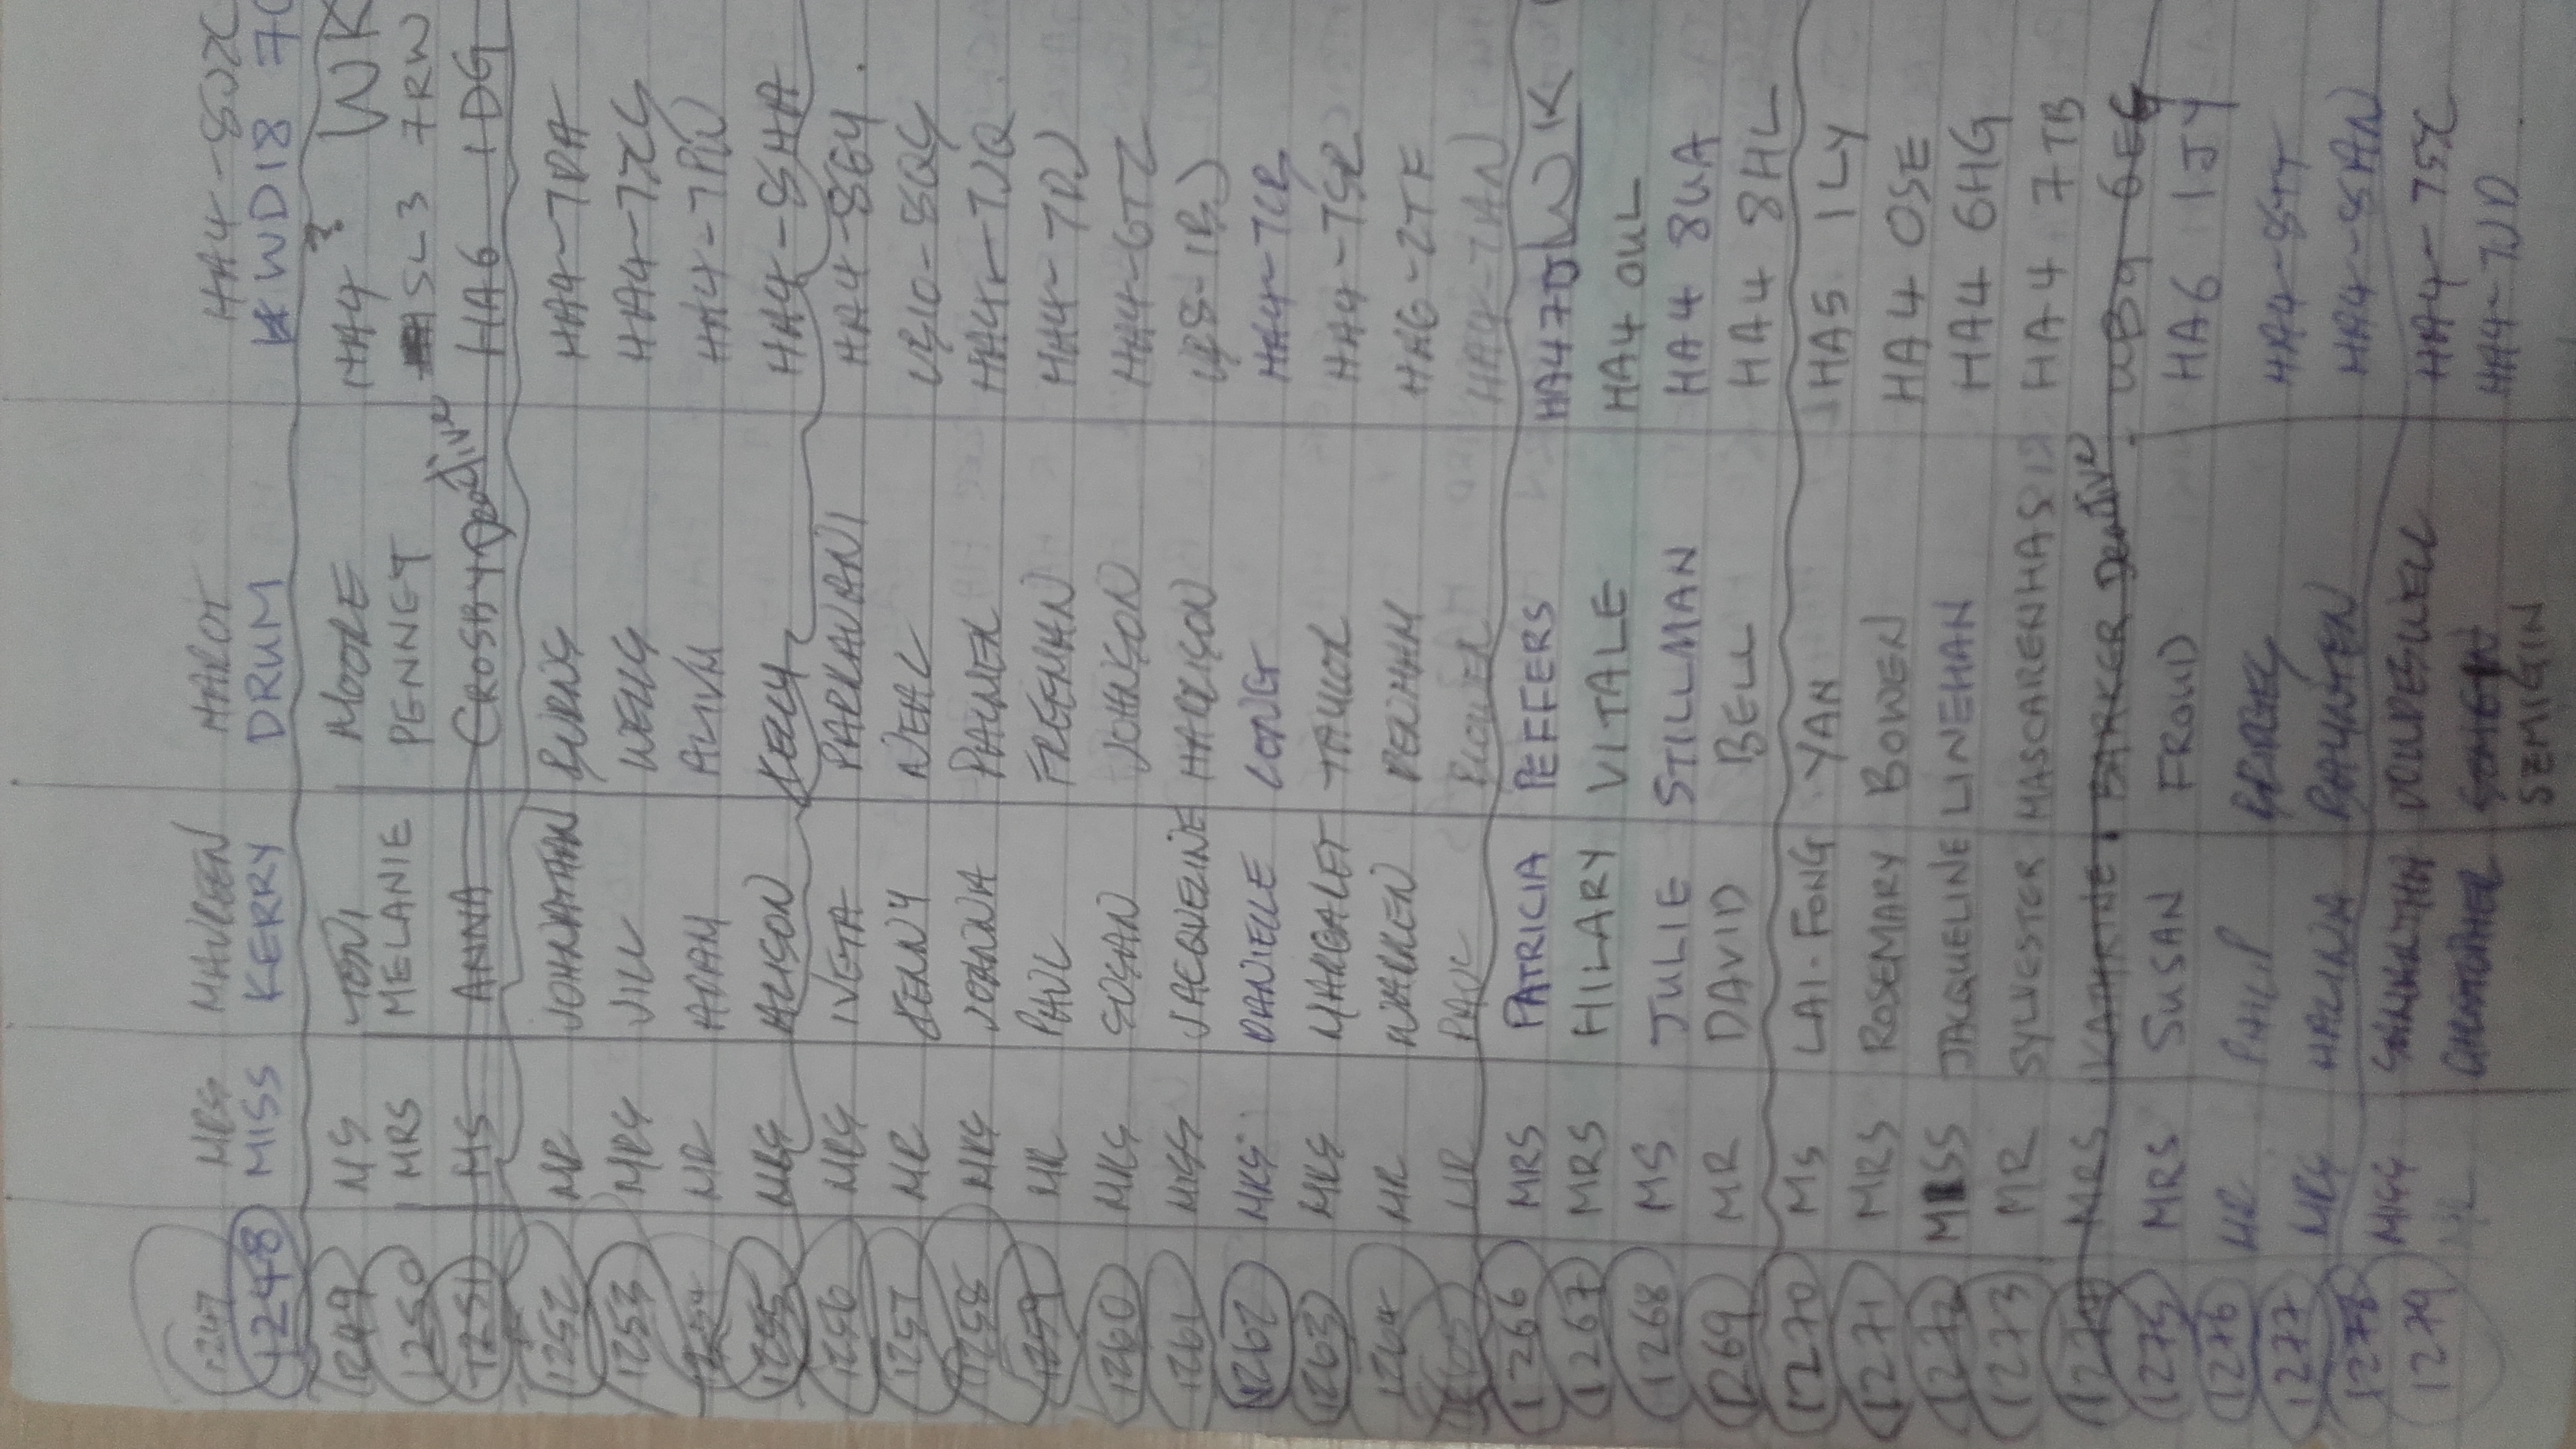 1247 MRS MAUREEN HAROT HA4-8UX
1248 MISS KERRY DRUM WD18 7
1249 MS TONI MOORE HA4 ? WK
1250 MRS MELANIE PENNEY SL3 7RW
1251 MS ANNA CROSBY Deactive HA6 1DG
1252 MR JOHNATHAN BURNS HA4-7DA
1253 MRS JILL WELLS HA4-7XS
1254 MR ADAM HA4-7PW
1255 MRS ALISON KELLY HA4-8HA
1256 MRS IVETA HA4-8GY
1257 MR KENNY NEAL UB10-8QS
1258 MRS JOANNA PALMER HA4-7JQ
1259 MR PAUL FREEMAN HA4-7DJ
1260 MRS SUSAN JOHNSON HA4-6TZ
1261 MISS JACQUELINE HARRISON UB8-1BJ
1262 MRS DANIELLE LONG HA4-7LB
1263 MRS MARGARET TAYLOR HA4-7SR
1264 MR WARREN DENHAM HA6-2TF
1265 MR PAUL BLOWER HA4-7AN
1266 MRS PATRICIA PEFFERS HA4 7TJ WK
1267 MRS HILARY VITALE HA4 0UL
1268 MS JULIE STILLMAN HA4 8UA
1269 MR DAVID BELL HA4 8HL
1270 MS LAI-FONG YAN HA5 1LY
1271 MRS ROSEMARY BOWEN HA4 0SE
1272 MISS JACQUELINE LINEHAN HA4 6HG
1273 MR SYLVESTER MASCARENHAS HA4 7TB
1274 MRS KATHRINE BARKER Deactive UB9 6EG
1275 MRS SUSAN FROUD HA6 1JY
1276 MR PHILIP BRIDGES HA4-8TT
1277 MRS HALINA BAYNTEN HA4-8AN
1278 MISS SAMANTHA DOWDESWELL HA4-7SX
1279 MR CHRISTOPHER HA4-7JD
SZMIGIN